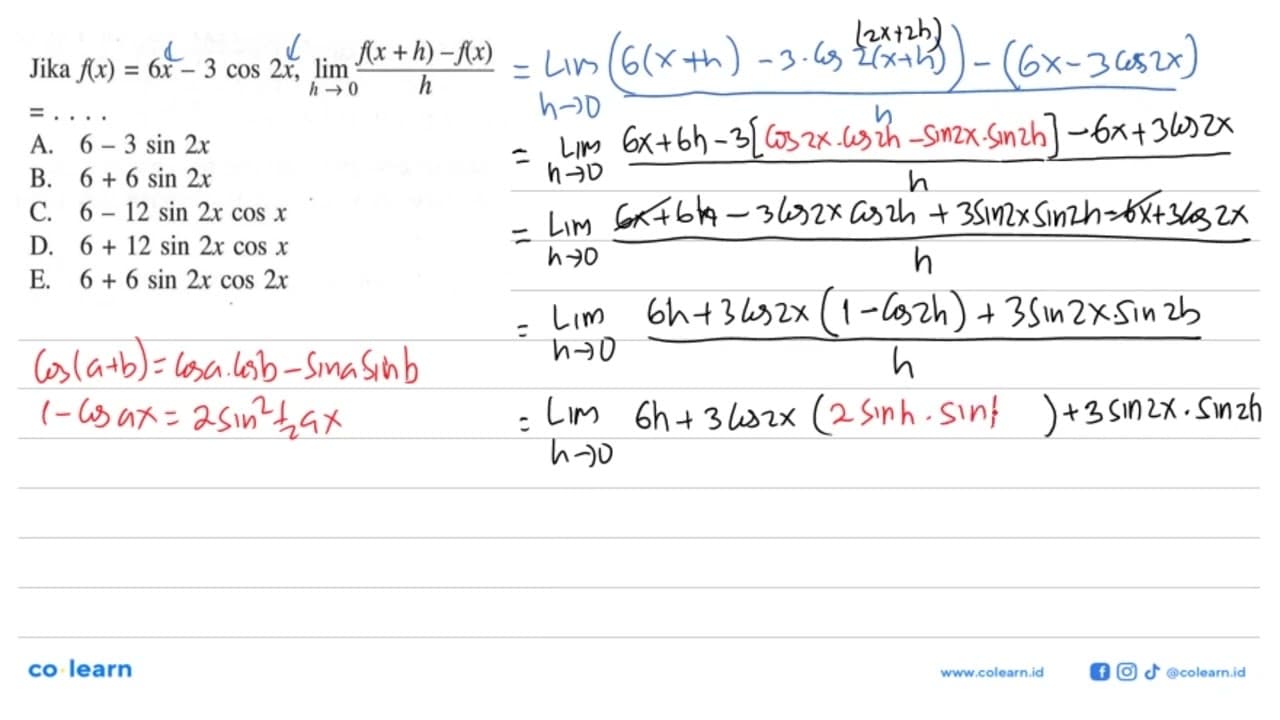 Jika f(x) = 6x – 3 cos 2x, lim h → 0 f(x + h) – f(x) / h
= . . . .
A. 6 – 3 sin 2x
B. 6 + 6 sin 2x
C. 6 – 12 sin 2x cos x
D. 6 + 12 sin 2x cos x
E. 6 + 6 sin 2x cos 2x
Cos(a+b) = Cos a. Cos b – Sin a Sin b
1 – Cos ax = 2 Sin² ½ ax
(2x+2h)
= Lim h→0 (6(x+h) – 3. Cos 2(x+h)) – (6x – 3 Cos 2x) / h
= Lim h→0 6x + 6h – 3[Cos 2x. Cos 2h – Sin 2x. Sin 2h] – 6x + 3 Cos 2x / h
= Lim h→0 6x + 6h – 3 Cos 2x Cos 2h + 3 Sin 2x Sin 2h – 6x + 3 Cos 2x / h
= Lim h→0 6h + 3 Cos 2x (1 – Cos 2h) + 3 Sin 2x. Sin 2h / h
= Lim h→0 6h + 3 Cos 2x (2 Sin h . Sin ) + 3 Sin 2x . Sin 2h
co learn
www.colearn.id
@colearn.id